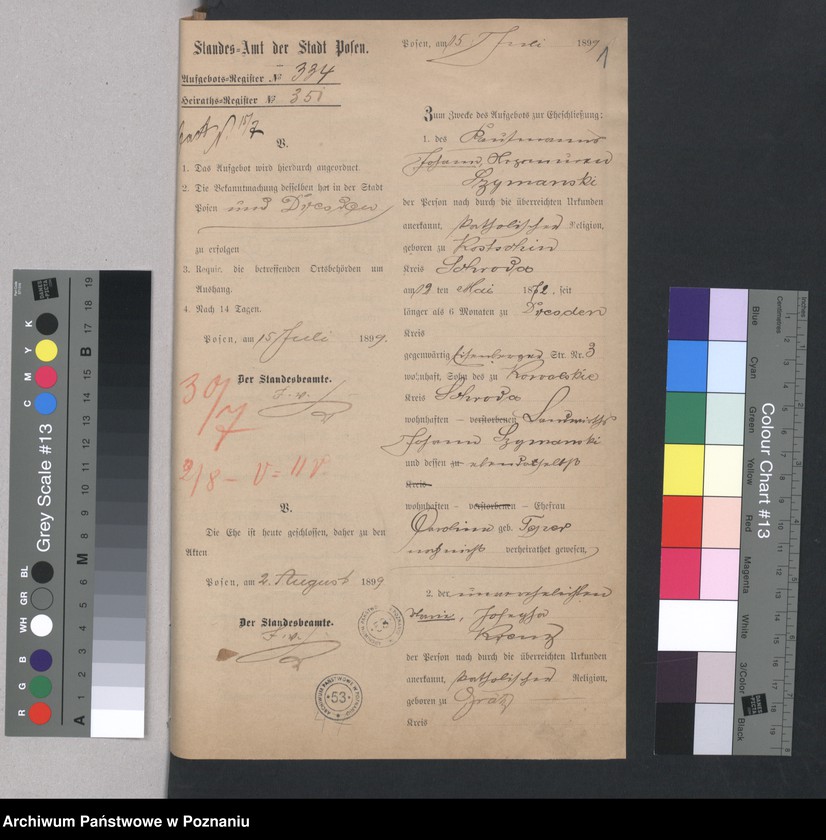 Standes=Amt der Stadt Posen.
Aufgebots=Register № 334
Heiraths=Register № 351
V.
1. Das Aufgebot wird hierdurch angeordnet.
2. Die Bekanntmachung desselben hat in der Stadt
Posen und Dresden
zu erfolgen
3. Requir. die betreffenden Ortsbehörden um
Aushang.
4. Nach 14 Tagen.
Posen, am 15 Juli 1899.
Der Standesbeamte.
30/7
2/8
V.
Die Ehe ist heute geschlossen, daher zu den
Akten
Posen, am 2. August 1899
Der Standesbeamte.
ARCHIWUM PAŃSTWOWE W POZNANIU
53
Posen, am 15 Juli 1899
1
Zum Zwecke des Aufgebots zur Eheschließung:
1. des Kaufmanns
Johann
Szymanski
der Person nach durch die überreichten Urkunden
anerkannt, katholischer Religion,
geboren zu Kostschin
Kreis Schroda
am 12 ten Mai 1872, seit
länger als 6 Monaten zu Dresden
Kreis
gegenwärtig Str. Nr. 3
wohnhaft, Sohn des zu Kowalskie
Kreis Schroda
wohnhaften – verstorbenen Landwirths
Johann Szymanski
und dessen zu ebendaselbst
Kreis
wohnhaften – verstorbenen – Ehefrau
Carolina geb.
noch nicht verheirathet gewesen,
2. der unverehelichten
Marie, Josepha
Krenz
der Person nach durch die überreichten Urkunden
anerkannt, katholischer Religion,
geboren zu Grätz
Kreis
Grey Scale #13
C M Y K
R G B
WH GR BL
A 1 2 3 4 5 6 M 8 9 10 11 12 13 14 15 B 17 18 19
Colour Chart #13
Blue
Cyan
Green
Yellow
Red
Magenta
White
3/Color
Black
Inches
Centimetres
Archiwum Państwowe w Poznaniu